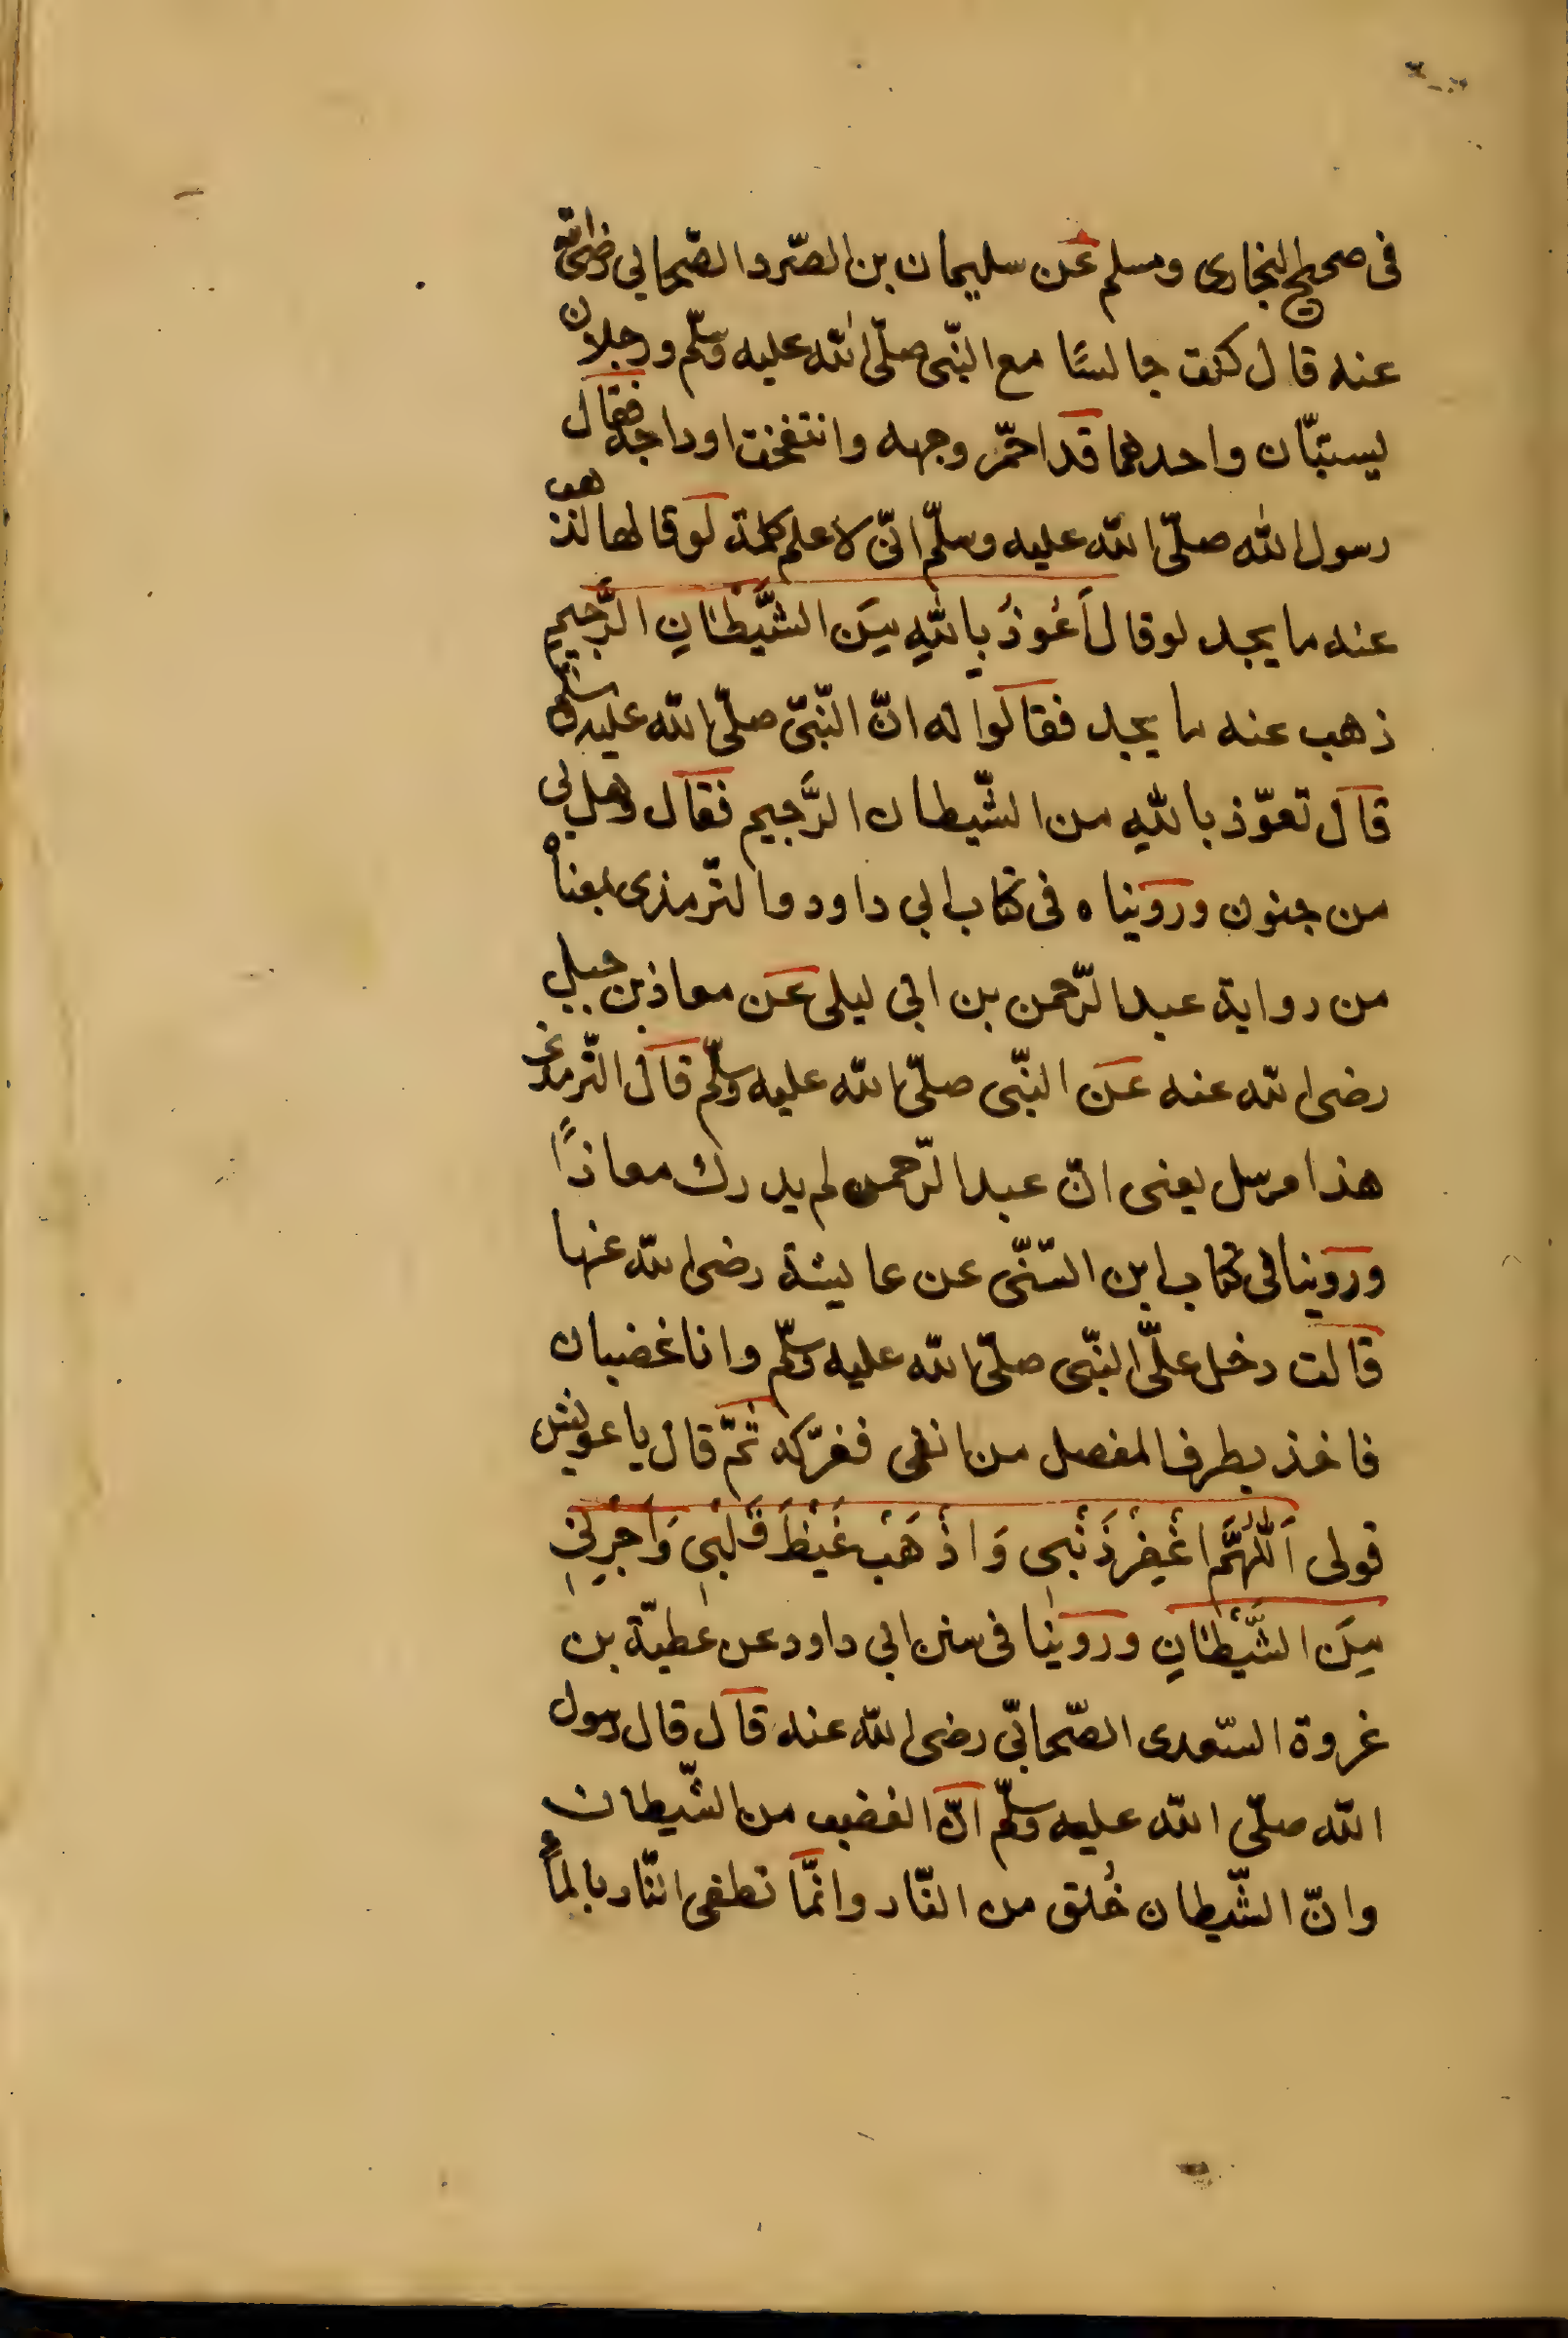 فى صحيح البخارى ومسلم عَن سليمان بن الصّرد الصّحابي رضى الله
عنه قال كنت جالسًا مع النّبى صلّى الله عليه وسلّم ورجلان
يستبّان واحدهما قد احمّر وجهه وانتفخت اوداجه فقال
رسول الله صلّى الله عليه وسلّم انّى لاعلم كلمة لو قالها لذهب
عنه ما يجد لو قال اَعُوذُ بِاللّٰهِ مِنَ الشَّيْطَانِ الرَّجِيمِ
ذهب عنه ما يجد فقالوا له انّ النّبىّ صلّى الله عليه وسلّم
قال تعوّذ باللّٰهِ من الشّيطان الرَّجيم فقال وهل بى
من جنون وروينا ه فى كتاب ابي داود والترّمذى بمعناه
من رواية عبد الرّحمن بن ابي ليلى عَن معاذ بن جبلٍ
رضى الله عنه عَن النبّى صلّى الله عليه وسلّم قال الترّمذى
هذا مرسل يعنى انّ عبد الرّحمن لم يدرك معاذًا
وروينا فى كتاب ابن السّنّى عن عايشة رضى الله عنها
قالت دخل علّىَ النبّى صلّى الله عليه وسلّم وانا غضبان
فاخذ بطرف المفصل من انفى فغرّكه ثمّ قال يا عويش
قولى اَللّٰهُمَّ اغْفِرْ ذَنْبِى وَاذْهَبْ غَيْظَ قَلْبِى وَاَجِرْنِى
مِنَ الشَّيْطَانِ وروينا فى سنن ابى داود عن عطيّة بن
غروة السّعدى الصّحابىّ رضى الله عنه قال قال رسول
الله صلّى الله عليه وسلّم انّ الغضب من الشّيطان
وانّ الشّيطان خُلق من النّار وانّما تطفى النّار بالماء